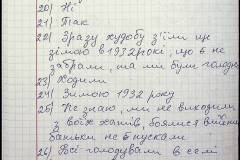 20) Ні
21) Так
22) Зразу худобу з'їли ще
зімою в 1932 році, що б не
забрали, та ми були голодні
23) Ходили
24) Зимою 1932 року
25) Не знаю, ми не виходили
з воїх хатів, боялися
батьки не впускали
26) Всі голодували в селі